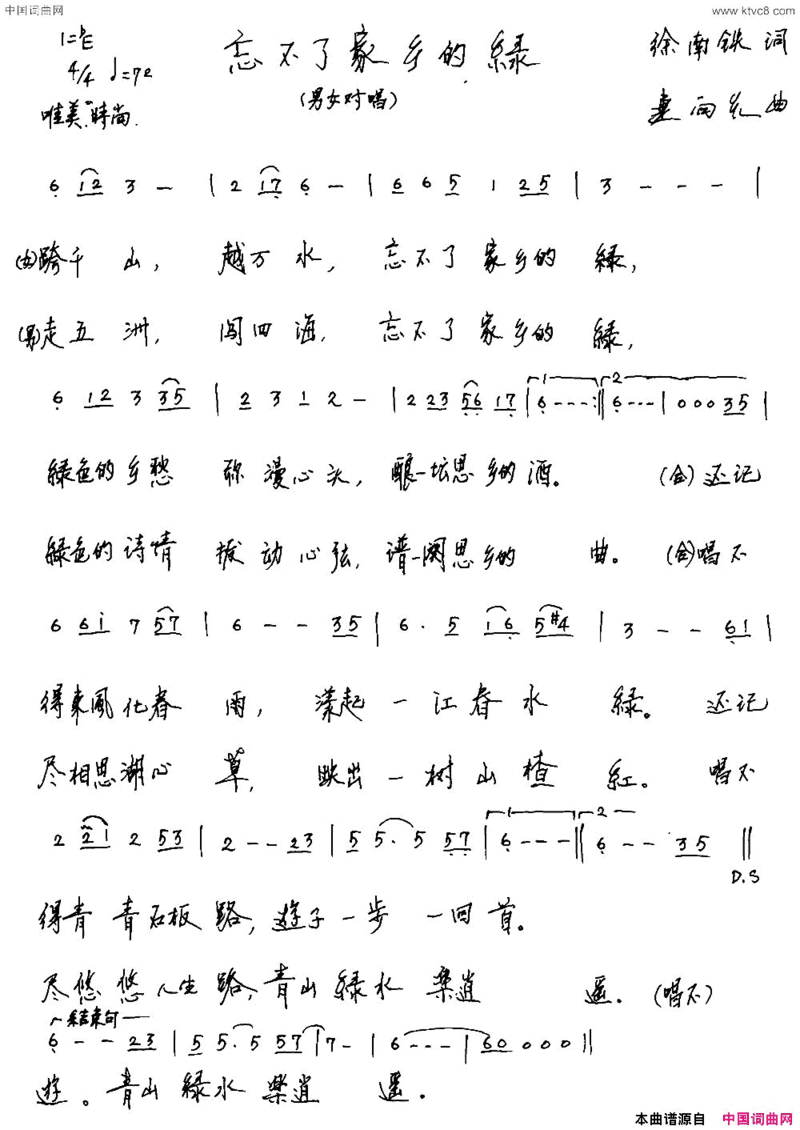 中国词曲网 www.ktvc8.com
1=♭E 忘不了家乡的緑 徐南铁 词
4/4 ♩=72 (男女对唱) 曲
唯美、時尚.
6 12 3 - | 2 17 6 - | 6 6 5 1 25 | 3 - - - |
(女)跨千 山, 越万 水, 忘不了 家乡的 緑,
(男)走五 洲, 闯四 海, 忘不了 家乡的 緑,
6 12 3 35 | 2 3 1 2 - | 2 23 56 17 | 1 6 - - - :|| 2 6 - - - | 0 0 0 35 |
緑色的乡愁 弥漫心头, 酿一坛思乡的酒。 (合)还记
緑色的诗情 拨动心弦, 谱一阕思乡的 曲。 (合)唱不
6 6i 7 57 | 6 - - 35 | 6. 5 16 5#4 | 3 - - 61 |
得東風化春 雨, 漾起 一 江春水 緑。 还记
尽相思湖心 草, 映出 一 树山楂 紅。 唱不
2 21 2 53 | 2 - - 23 | 5 5. 5 57 | 1 6 - - - || 2 6 - - 35 ||
D.S
得青 青石板 路, 遊子一步 一回首。
尽悠 悠人生 路, 青山緑水 楽逍 遥。 (唱不)
結束句
6 - - 23 | 5 5. 5 57 | 7 - | 6 - - - | 60 0 0 0 ||
遊。青山 緑水 楽逍 遥.
本曲谱源自 中国词曲网